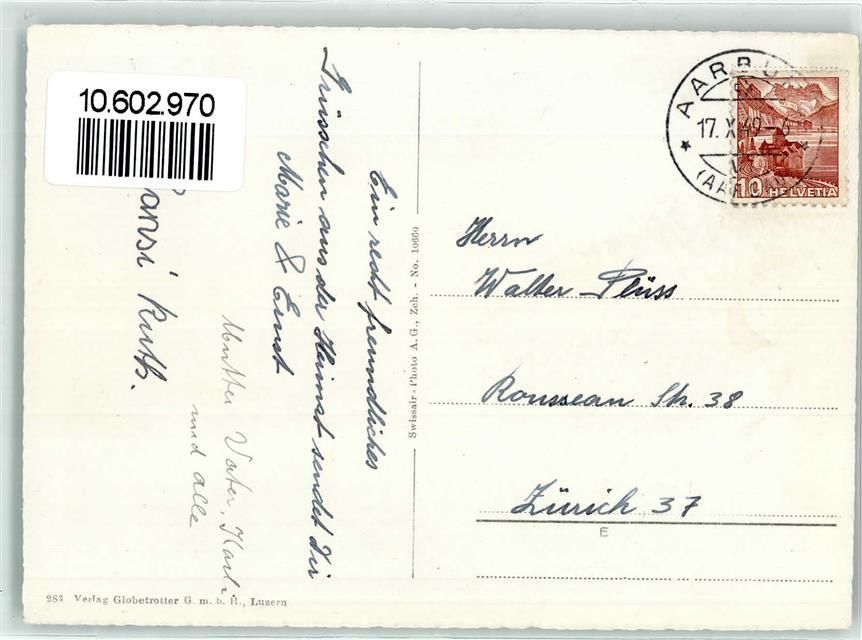 10.602.970
Ein recht freundliches
Grüsschen aus der Heimat sendet Dir
Marie & Ernst
Mutter Vater, Karli
und alle
Hansi Ruth.
Swissair-Photo A.G., Zch. - No. 10660
AARBU
17. X 49 - 6
(AARGAU)
10 HELVETIA
Herrn
Walter Plüss
Rousseau Str. 38
Zürich 37
E
283 Verlag Globetrotter G. m. b. H., Luzern